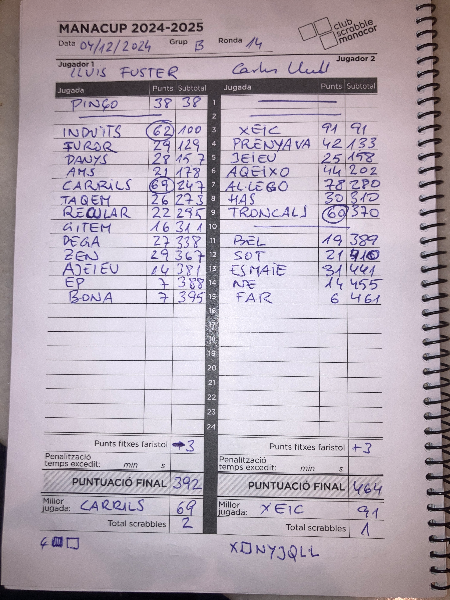 MANACUP 2024-2025
club scrabble manacor
Data 04/12/2024 Grup B Ronda 14
Jugador 1 Jugador 2
LLUIS FUSTER Carles Llull
Jugada Punts Subtotal Jugada Punts Subtotal
PINÇO 38 38 1
2
INDUÏTS 62 100 3 XEIC 91 91
FUROR 29 129 4 PRENYAVA 42 133
DANYS 28 157 5 JEIEU 25 158
AMS 21 178 6 AQEIXO 44 202
CARRILS 69 247 7 AL·LEGO 78 280
TAQEM 26 273 8 HAS 30 310
REGULAR 22 295 9 TRONCALS 60 370
GITEM 16 311 10
DEGA 27 338 11 BEL 19 389
ZEN 29 367 12 SOT 21 410
AJEIEU 14 381 13 ESMAIE 31 441
EP 7 388 14 NE 14 455
BONA 7 395 15 FAR 6 461
16
17
18
19
20
21
22
23
24
Punts fitxes faristol -3 Punts fitxes faristol +3
Penalització temps excedit: min s Penalització temps excedit: min s
PUNTUACIÓ FINAL 392 PUNTUACIÓ FINAL 464
Millor jugada: CARRILS 69 Millor jugada: XEIC 91
Total scrabbles 2 Total scrabbles 1